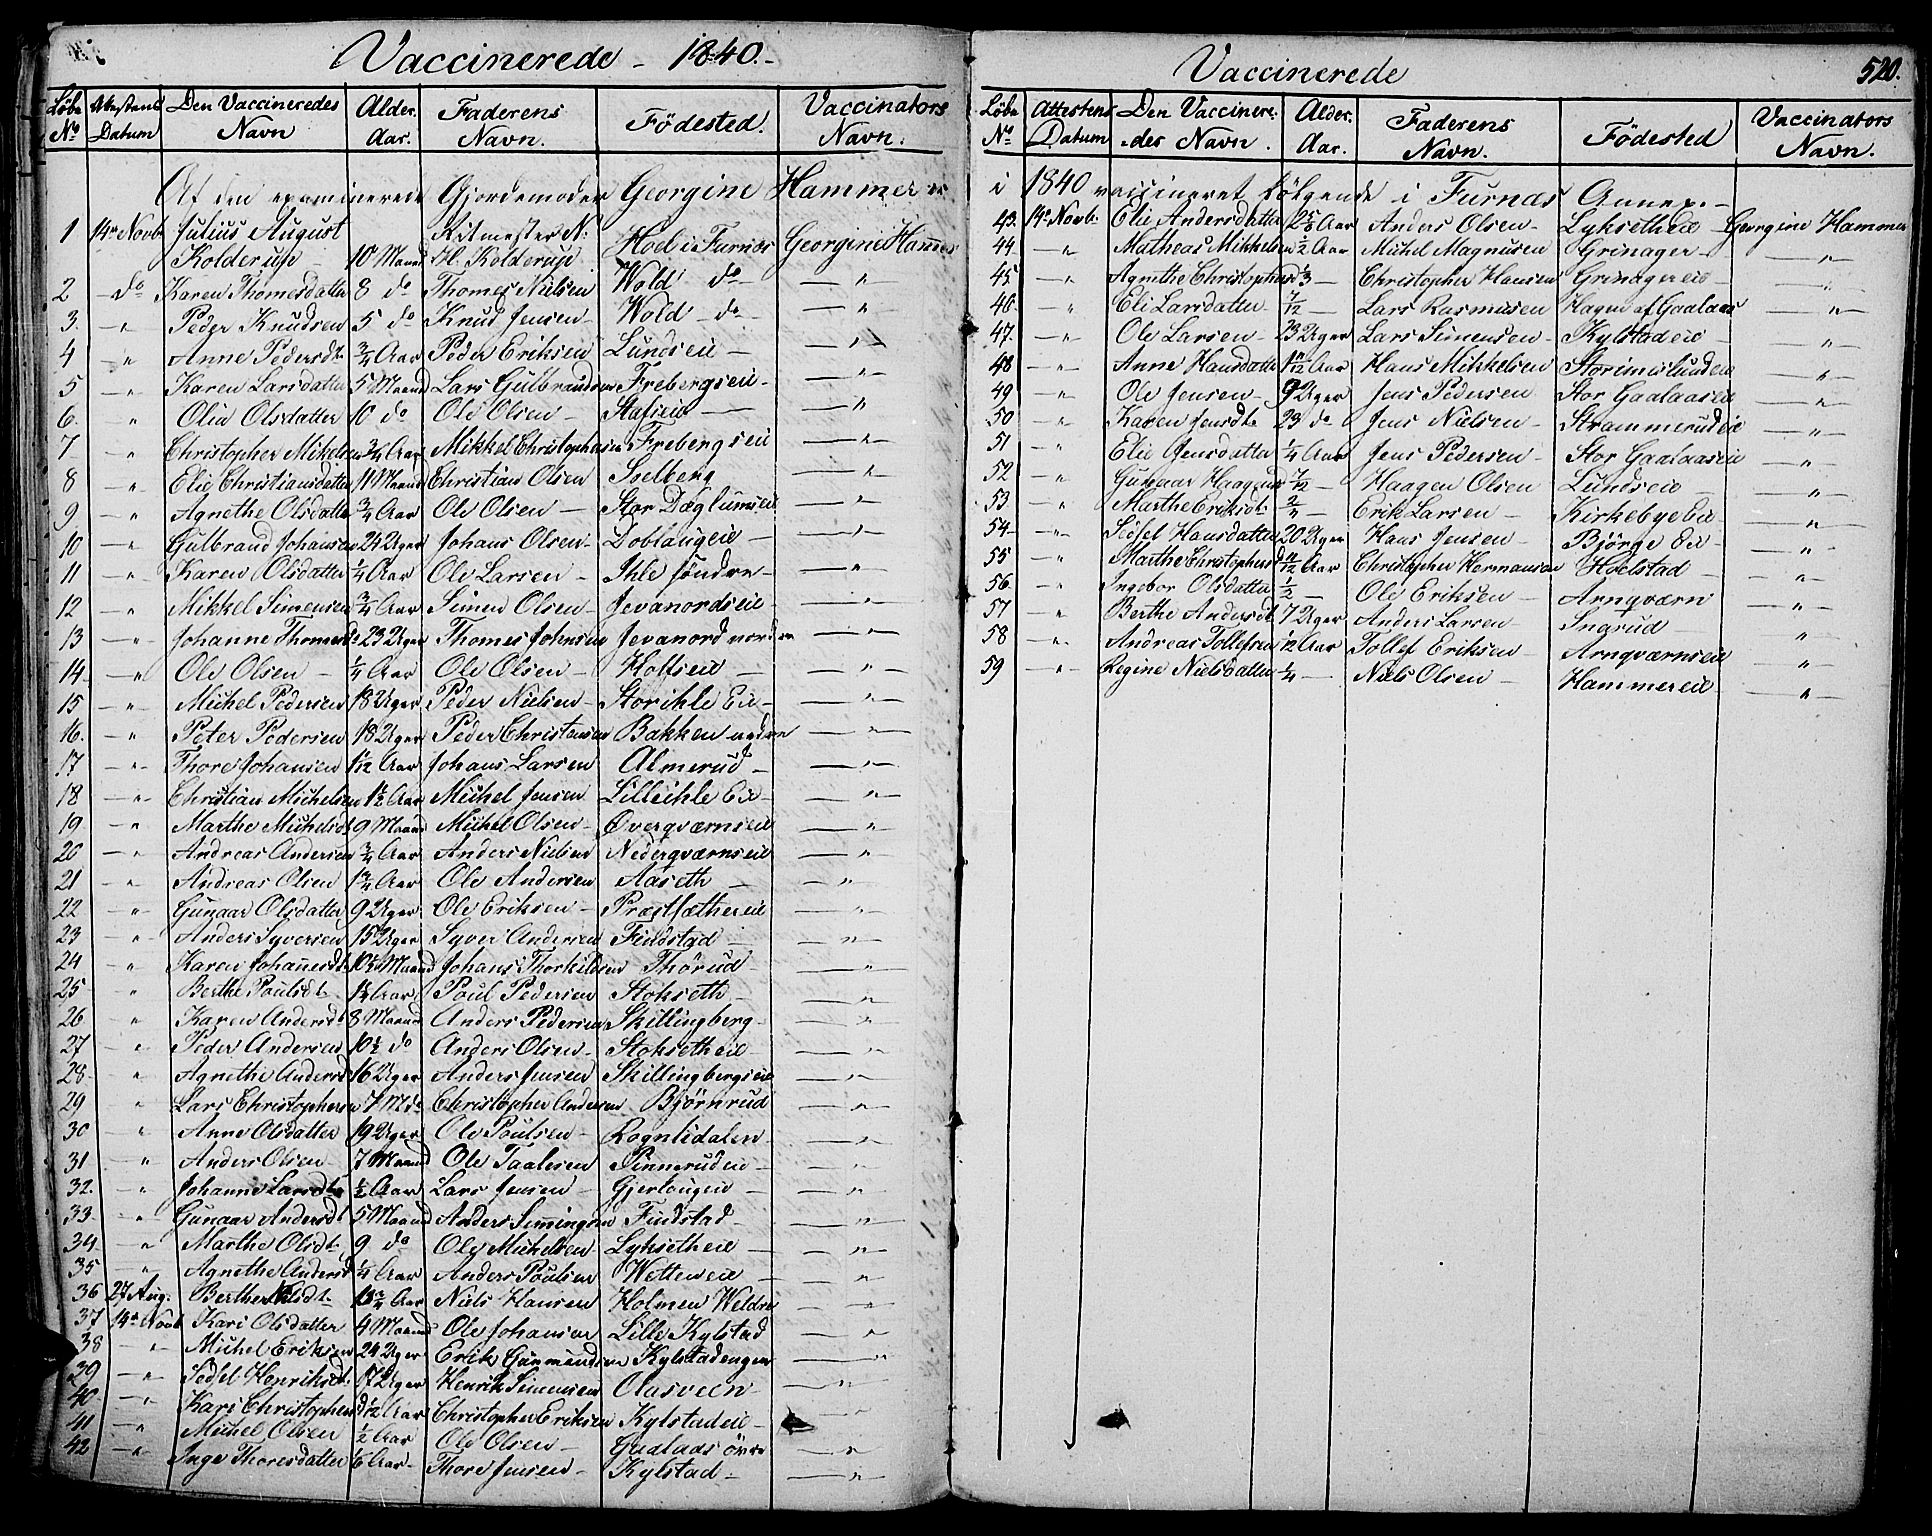 Vaccinerede - 1840.-
Løbe No | Attestens Datum | Den Vaccineredes Navn | Alder. Aar. | Faderens Navn. | Födested. | Vaccinators Navn.
Af den examinerede Gjordemoder Georgine Hammer er
1 14de Novb Julius August Ritmester N:
Kolderup - 10 Maand H. Kolderup Hoel i Furnæs Georgine Hammer
2 - do Karen Thomesdatter 8 do Thomes Nielsen Wold do - „
3. „ Peder Knudsen 5 do Knud Jensen - Wold - do - „
4 „ Anne Pedersdt. 3/4 Aar Peder Eriksen Lundseie - „
5 „ Karen Larsdatter 5 Maand Lars Gulbrandsen Frebergseie - „
6. „ Olia Olsdatter 10 do Ole Olsen - Stafseie - „
7 „ Christopher Mikelsen 3/4 Aar Mikkel Christophersen Frebergseie „
8 „ Elie Christiansdatter 11 Maand Christian Olsen Sselberg „
9 „ Agnethe Olsdatter 3/4 Aar Ole Olsen - Stor Dæglumseie „
10 „ Gulbrand Johansen 24 Uger Johans Olsen - Doblaugeie - „
11 „ Karen Olsdatter 1/4 Aar Ole Larsen - Ihle söndre - „
12 „ Mikkel Simensen 3/4 Aar Simen Olsen - Jevanordseie - „
13 „ Johanne Thomesdr 23 Uger Thomes Johnsen Jevanord nordre „
14. „ Ole Olsen - 1/4 Aar Ole Olsen - Hoffseie - „
15 „ Michel Pedersen 18 Uger Peder Nielsen - Storihle Eie - „
16. „ Peter Pedersen 18 Uger Peder Christensen Bakken nedre „
17 „ Thore Johansen 1/12 Aar Johans Larsen Almerud - „
18 „ Christian Michelsen 1 1/2 Aar Michel Jensen Lilleihle Eie - „
19. „ Marthe Michelsdt 9 Maand Michel Olsen - Overqværnseie „
20 „ Andreas Andersen 3/4 Aar Anders Nielsen Nederqværnseie „
21 „ Andreas Olsen 1 3/4 Aar Ole Andersen Aaseth - „
22 „ Gunaar Olsdatter 9 Uger Ole Eriksen - Præstsæthereie „
23 „ Anders Syversen 15 Uger Syver Andersen Findstad - „
24 „ Karen Johannesdt. 10 1/2 Maand Johans Thorkildsen Thorud - „
25 „ Berthe Poulsdt. 1 1/4 Aar Poul Pedersen Stokseth - „
26 „ Karen Andersdt 8 Maand Anders Pedersen Skillingberg - „
27 „ Peder Andersen 10 1/2 do Anders Olsen - Stoksetheie - „
28 „ Agnethe Andersd 16 Uger Anders Jensen Skillingbergseie „
29 „ Lars Christophersen 7 Mdr Christopher Andersen Bjørnrud „
30 „ Anne Olsdatter 19 Uger Ole Poulsen - Rognlidalen - „
31 „ Anders Olsen - 7 Maand Ole Taalesen Pinnerudeie - „
32. „ Johanne Larsdt. 1/2 Aar Lars Jensen - Gjerlaugeie - „
33 „ Gunaar Andersdt 5 Maand Anders Semmingsen Findstad - „
34 „ Marthe Olsdt. 9 do Ole Michelsen - Lyksetheie - „
35 „ Agnethe Andersd 1/4 Aar Anders Poulsen Wetteneie - „
36 27 Aug. Berthe Nilsdt. Aar Niels Hansen Holmen Weldre „
37 14de Novb Kari Olsdatter 4 Maand Ole Johansen Lille Kylstad „
38 „ Michel Eriksen 24 Uger Erik Gunmundsen Kylstadengen „
39 „ Sedsel Henriksdt. 17 Uger Henrik Simensen Olasveen - „
40 „ Kari Christophersd 1/12 Aar Christopher Eriksen Kylstadeie - „
41 „ Michel Olsen 1/2 Aar Ole Olsen - Gaalaas övre „
42 „ Inge Thoresdatter 1/6 Aar - Thore Jensen - Kylstad - „
Vaccinerede 520.
Løbe No | Attestens Datum | Den Vaccinere-des Navn. | Alder. Aar. | Faderens Navn. | Födested | Vaccinators Navn.
i 1840 vaccineret følgende i Furnæs Annex. -
43. 14de Novb. Elie Andersdatter Aar Anders Olsen - Lyksetheie - Georgine Hammer
44 „ Matheas Mikkelsen 1/2 Aar Michel Magnusen Grinager - „
45. „ Agnethe Christophersd 1/3 - Christopher Hansen Grinagereie - „
46. „ Eli Larsdatter - 7/12 - Lars Rasmusen Hagen af Gaalaas „
47. „ Ole Larsen - 23 Uger Lars Simensen - Kylstadeie - „
48 „ Anne Hansdatter 11/12 Aar Hans Mikkelsen Storimislundeie „
49 „ Ole Jensen - 9 Uger Jens Pedersen Stor Gaalaaseie „
50 „ Karen Jensdt. 23 do Jens Nielsen - Strammerudeie „
51 „ Elie Jensdatter 1/4 Aar Jens Pedersen - Stor Gaalaaseie „
52 „ Gunaar Haagensd 7/12 - Haagen Olsen Lundseie - „
53 „ Marthe Eriksdt. 2/4 - Erik Larsen - Kirkebye Eie - „
54 „ Sedsel Hansdatter 20 Uger Hans Jensen - Björge Eie - „
55 „ Marthe Christophersd 11/12 Aar Christopher Hermansen Hoelstad - „
56. „ Ingebor Olsdatter 1/2 - Ole Eriksen - Arnqværn „
57 „ Berthe Andersdt 7 Uger Anders Larsen - Ingrud - „
58 „ Andreas Tollefsen 1/12 Aar Tollef Eriksen - Arnqværnseie „
59 „ Regine Nielsdatter 1/4 - Niels Olsen - Hammereie - „